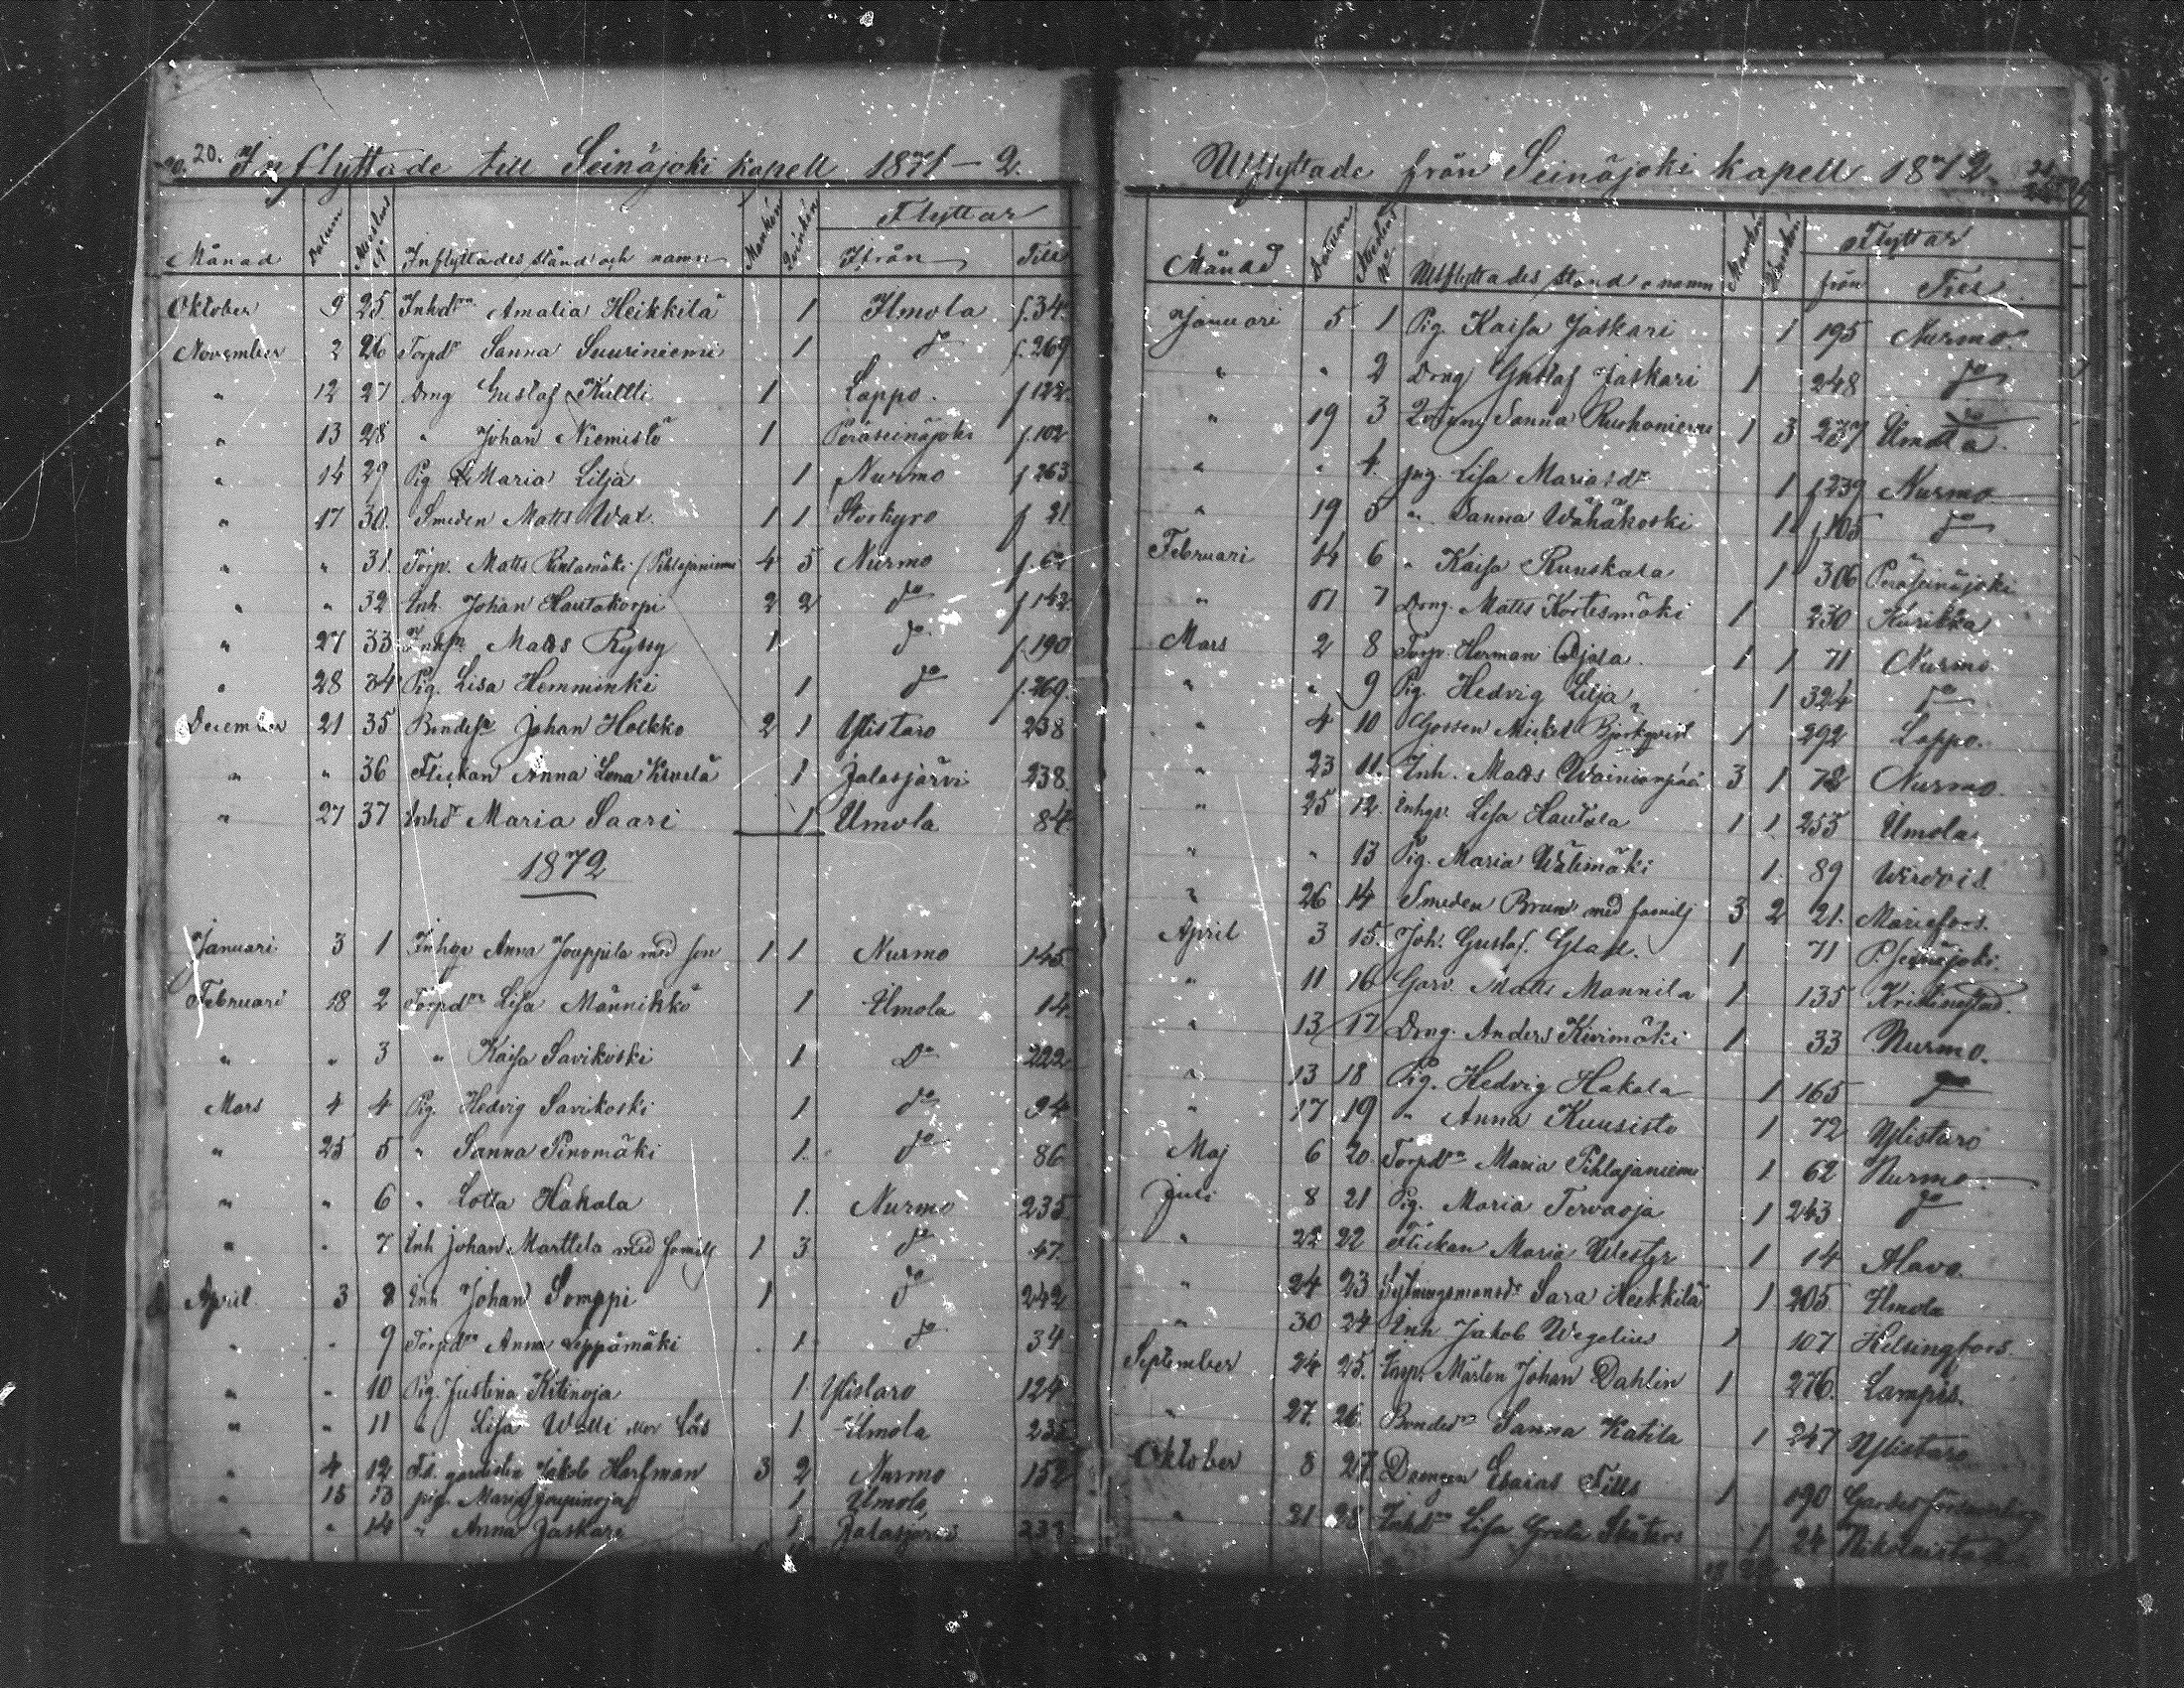 20. Inflyttade till Seinäjoki kapell 1871–2.
Flyttar
Månad Datum Attestens No Inflyttades stånd och namn Mankön Qvinkön Ifrån Till
Oktober 9 25 Inhdr Amalia Heikkilä 1 Ilmola f. 34.
November 2 26 Torpdr Sanna Suuriniemi 1 do f. 269
" 12 27 Dng Gustaf Kultti 1 Lappo. f 122.
" 13 28 " Johan Niemistö 1 Peräseinäjoki f. 102
" 14 29 Pig Maria Lilja 1 Nurmo f 263
" 17 30. Smeden Matts Wax. 1 1 Storkyro f 21
" " 31. Torp. Matts Rintamäki / Pihlajaniemi 4 5 Nurmo f. 62
" " 32 Inh. Johan Hautakorpi 2 2 do f 142
" 27 33 Matts Ryssy 1 do f. 190
" 28 34 Pig. Lisa Hemminki 1 do f. 269.
December 21 35 Bondes Johan Holkko 2 1 Ylistaro 238
" " 36 Flickan Anna Lena 1 Jalasjärvi 238.
" 27 37 Inhdr Maria Saari 1 Ilmola 84.
1872
Januari 3 1 Inhge Anna Jouppila med son 1 1 Nurmo 145
Februari 18 2 Torpdr Lisa Männikkö 1 Ilmola 14.
" " 3 " Kaisa Savikoski 1 Do 222
Mars 4 4 Pig. Hedvig Savikoski 1 do 94
" 25 5 " Sanna Pinomäki 1. do 86
" " 6 " Lotta Hakala 1. Nurmo 235.
" " 7 Inh Johan Marttila med familj 1 3 do 47.
April 3 8 Inh Johan Somppi 1 do 242
" " 9 Torpdr Anna Leppämäki 1 do 34
" " 10 Pig. Justina Kitinoja 1 Ylistaro 124
" " 11 " Lisa 1 Ilmola 235
" 4 12. Jakob Harfman 3 2 Nurmo 152
" 15 13 pig. Maria 1 Ilmola
" " 14 " Anna Jaskari 1 Jalasjärvi
Utflyttade från Seinäjoki kapell 1872
Flyttar
Månad Datum Attestens No Utflyttades stånd o namn Mankön Qvinkön från Till
Januari 5 1 Pig. Kaisa Jaskari 1 195 Nurmo.
" " 2 Dreng Gustaf Jaskari 1 248 do
" 19 3 Sanna Ruohoniemi 1 3 277 Ilmola.
" " 4. pig. Lisa Mariasdr 1 f 239 Nurmo
" 19 5 " Sanna Wähäkoski 1 f 105 do
Februari 14 6 " Kaisa Ruuskala 1 306 Peräseinäjoki
" 17 7 Dreng. Matts Kortesmäki 1 230 Kurikka
Mars 2 8 Torp. Herman Ojala. 1 1 71 Nurmo
" " 9 Pig. Hedvig Lilja 1 324 do
" 4 10 Gossen Mickel Björkqvist 1 292 Lappo.
" 23 11. Inh. Matts Wainionpää 3 1 72 Nurmo.
" 25 12. Inhge Lisa Hautala 1 1 253 Ilmola
" " 13 Pig. Maria Wälimäki 1 89 Wirdois
" 26 14 Smeden Brun med familj 3 2 21. Mariefors.
April 3 15. Joh. Gustaf. Glad. 1 71 P. seinäjoki.
" 11 16 Garv. Matts Mannila 1 135 Kristinestad.
" 13 17 Dreng. Anders Kivimäki 1 33 Nurmo.
" 13 18 Pig. Hedvig Hakala 1 165 do
" 17 19 " Anna Kuusisto 1 72 Ylistaro
Maj 6 20. Torpdr Maria Pihlajaniemi 1 62 Nurmo.
Juli 8 21 Pig. Maria Tervaoja 1 243 do
" 22 22 Flickan Maria 1 14 Alavo.
" 24 23 Sytningsmansdr Sara Heikkilä 1 205 Ilmola
" 30 24 Inh Jakob Wegelius 1 107 Helsingfors.
September 24 25. Insp. Mårten Johan Dahlin 1 276. Lampis.
" 27. 26. Bondedr Sanna Katila 1 247 Ylistaro
Oktober 8 27 Drengen Esaias Tills 1 190
" 21 28 Inhdr Lisa Greta 1 24 Nikolaistad